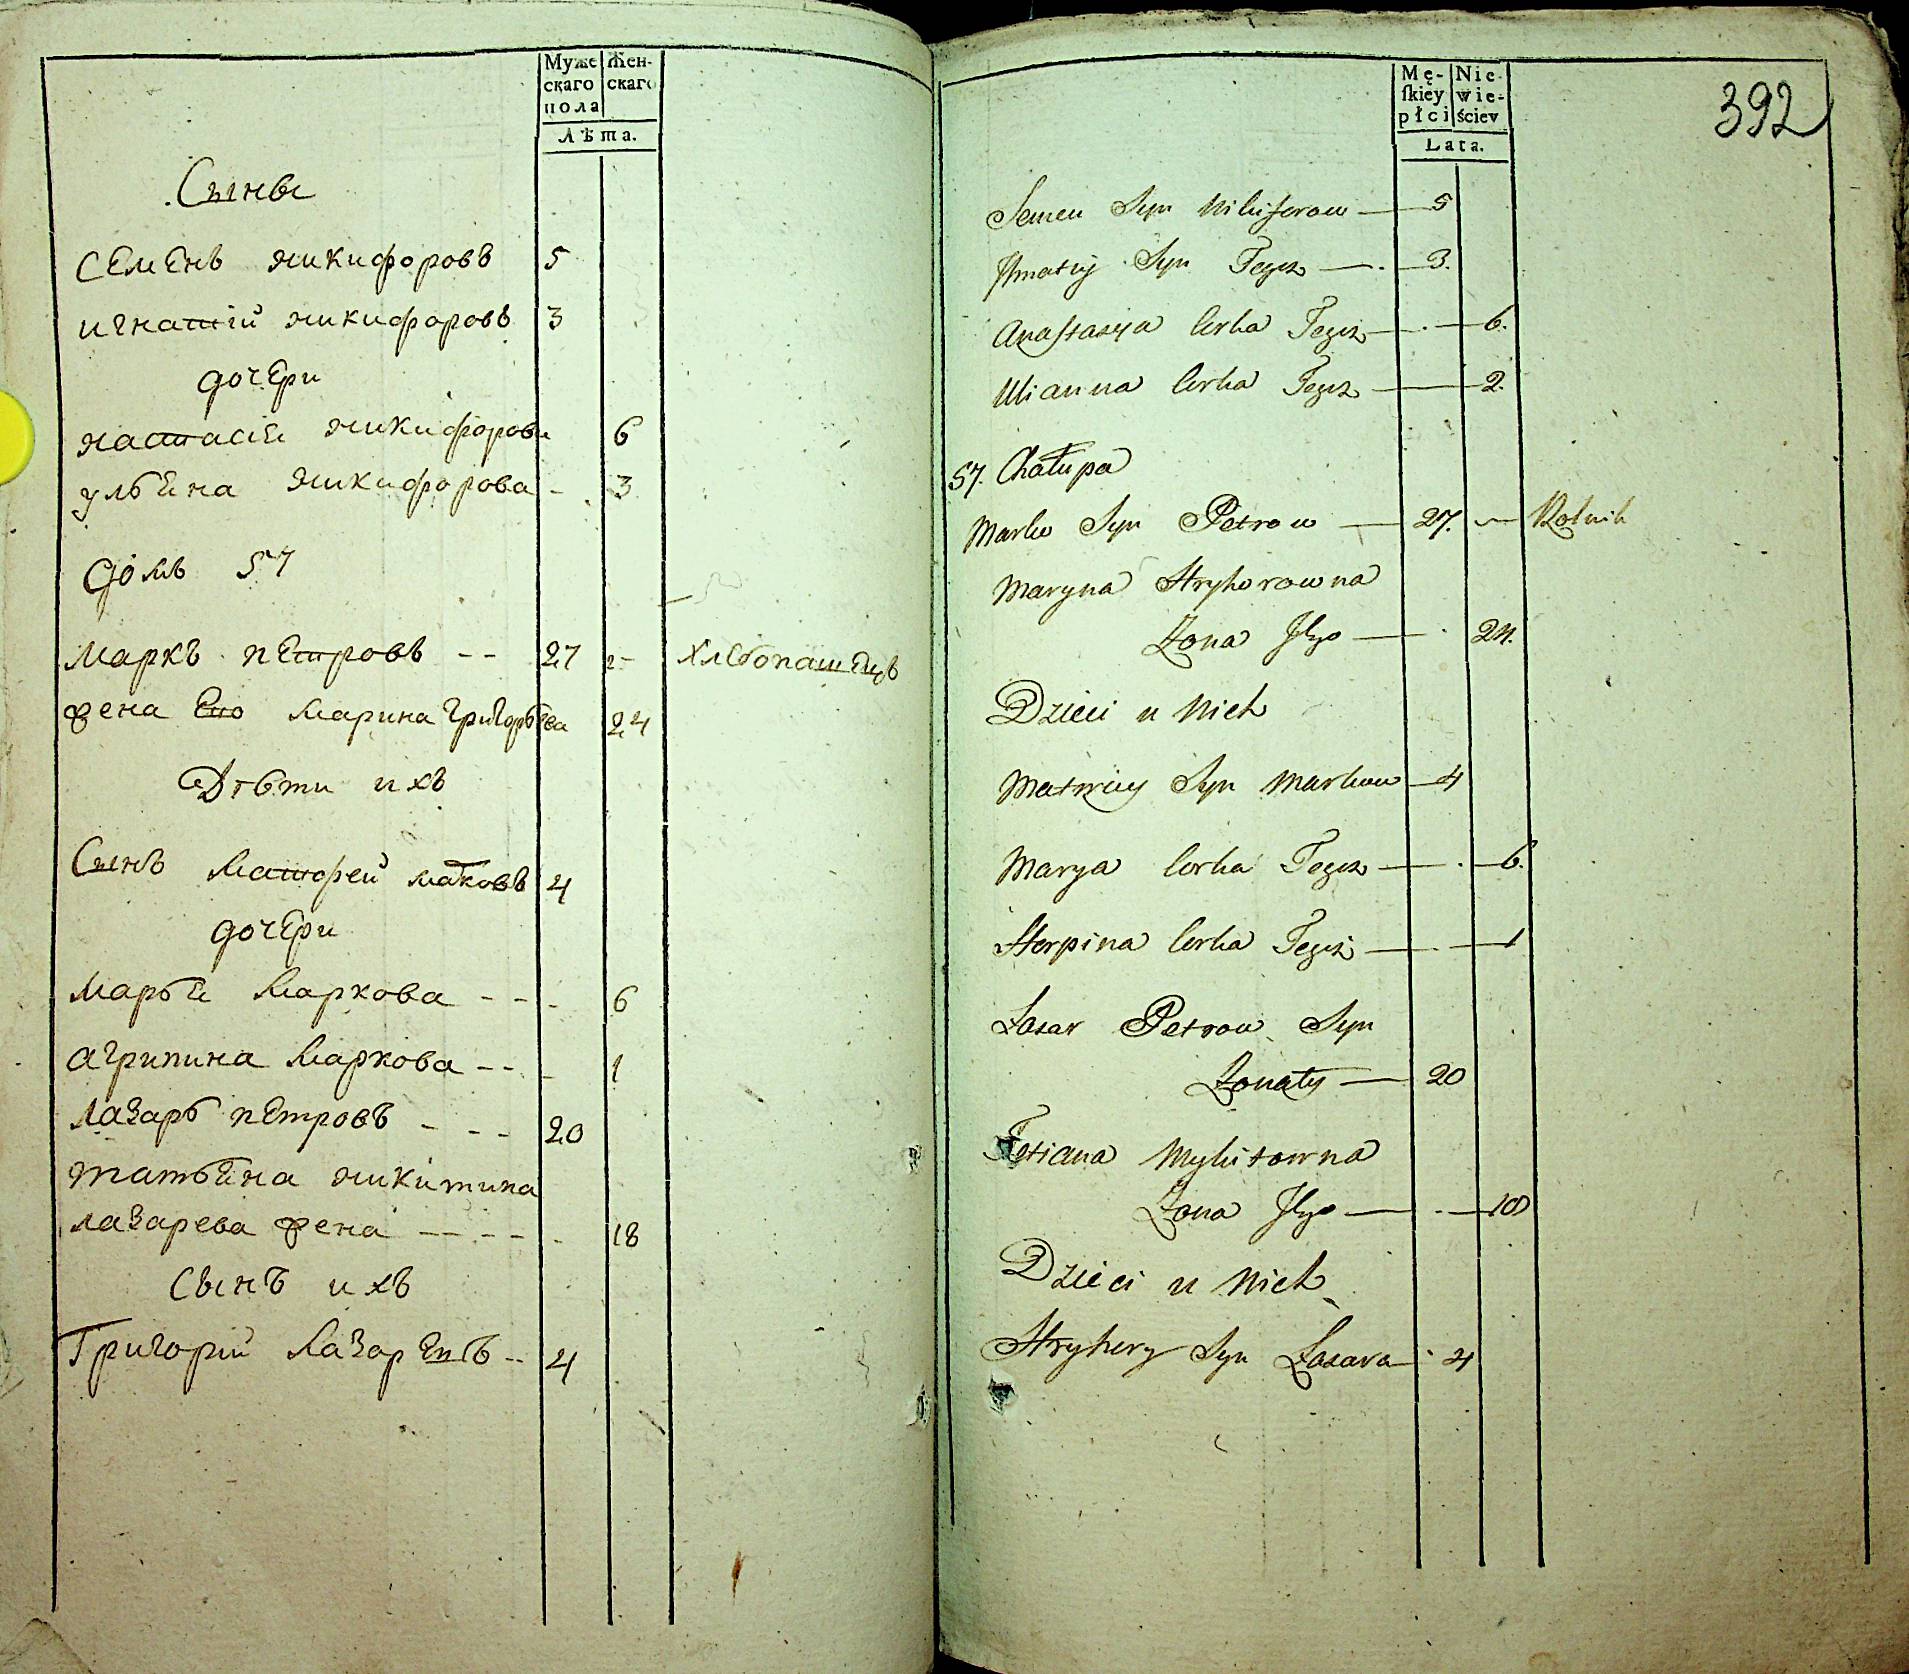 Муже
скаго
пола
Жен-
скаго
Лѣта.
Сыны
Семенъ Никифоровъ 5
Игнатій Никифоровъ 3
дочери
Настасія Никифорова 6
Ульяна Никифорова - 3
Домъ 57
Маркъ Петровъ -- 27 -- хлебопашецъ
жена Его Марина Григорьева 24
Дѣти ихъ
Сынъ Матфей Маковъ 4
дочери
Марья Маркова --- 6
Агрипина Маркова --- 1
Лазарь Петровъ --- 20
Татьяна Никитина
Лазарева жена ---- - 18
Сынъ ихъ
Григорій Лазаревъ -- 4
392
Mę-
ſkiey
płci
Nie-
wie-
ściey
Lata.
Semen Syn Nikiforow — 5
Ihnatiy Syn Tegoz — 3.
Anastasiya Corka Tegoz — 6.
Ulianna Corka Tegoz — 2.
57. Chałupa
Marko Syn Petrow — 27. — Rolnik
Maryna Hryhorowna
Zona Jego — 24.
Dzieci u Nich
Matwiey Syn Markow — 4
Marya Corka Tegoz — 6.
Horpina Corka Tegoż — 1
Łazar Petrow Syn
Zonaty — 20
Tetiana Mykitowna
Zona Jego — 18
Dzieci u Nich
Hryhory Syn Łazara — 4